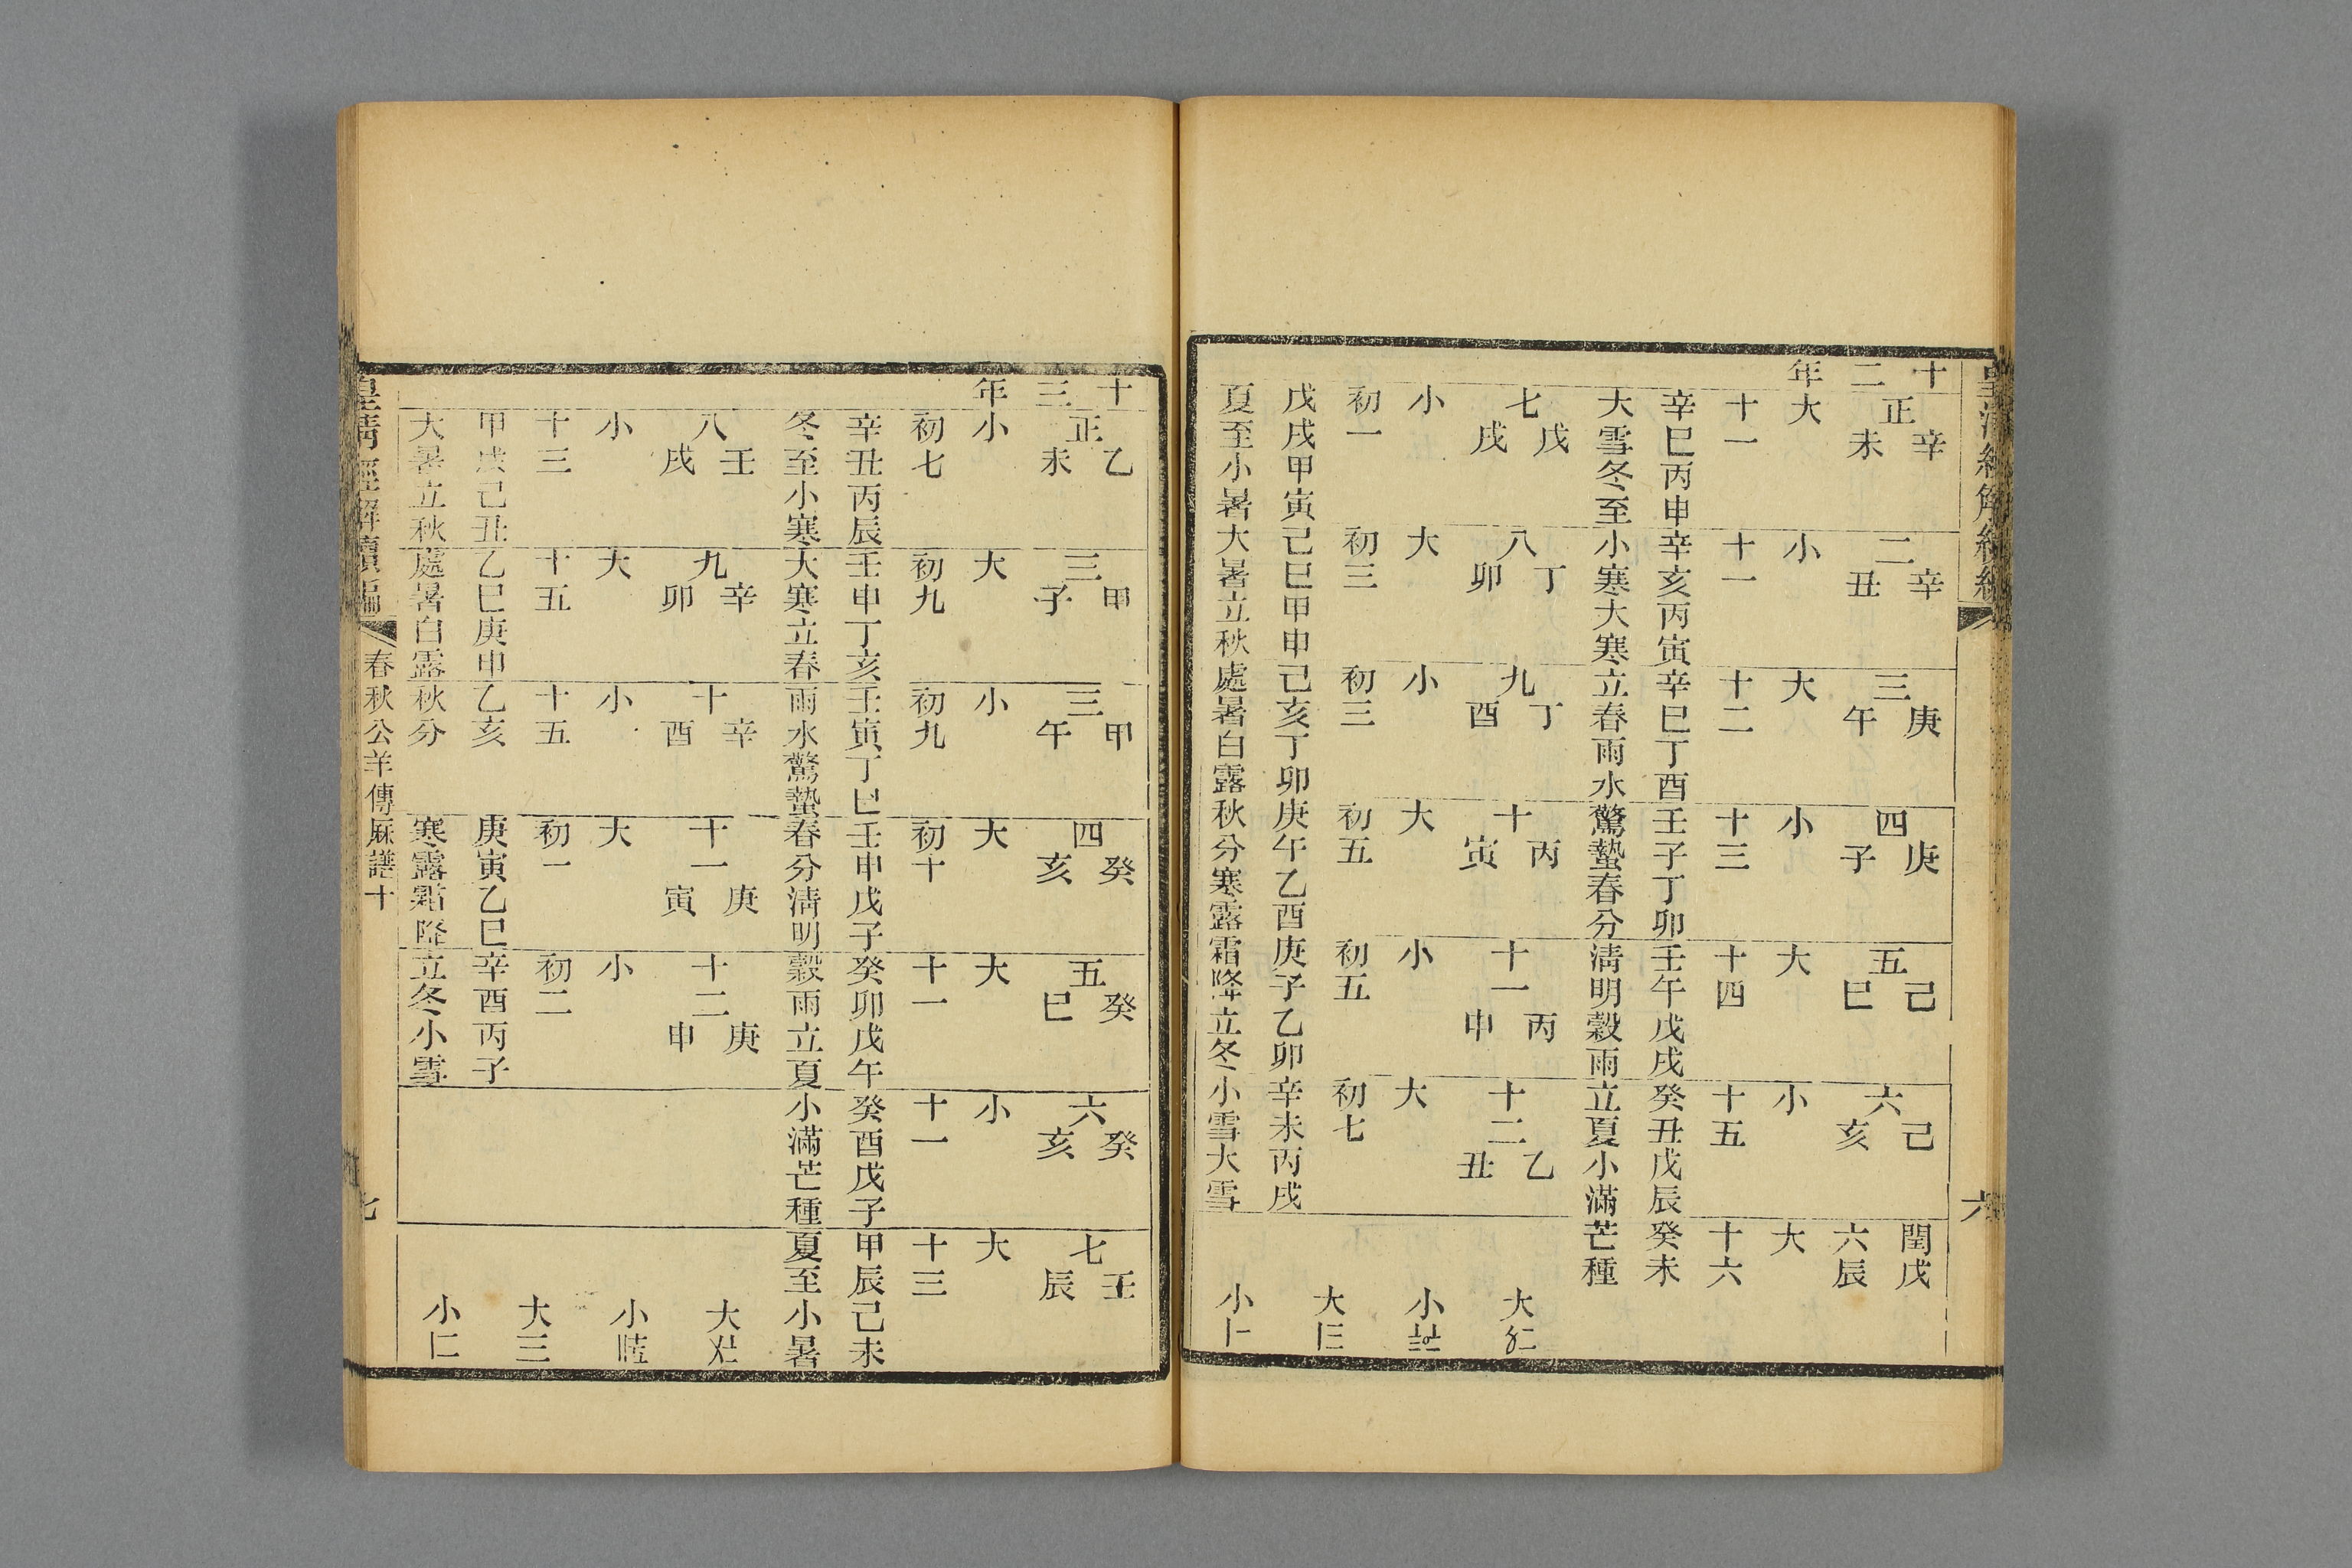 皇清經解續編 六
十二年
正 辛未 二 辛丑 三 庚午 四 庚子 五 己巳 六 己亥 閏六 戊辰
大 小 大 小 大 小 大
十一 十一 十二 十三 十四 十五 十六
辛巳丙申 辛亥丙寅 辛巳丁酉 壬子丁卯 壬午戊戌 癸丑戊辰 癸未
大雪冬至 小寒大寒 立春雨水 驚蟄春分 清明穀雨 立夏小滿 芒種
七 戊戌 八 丁卯 九 丁酉 十 丙寅 十一 丙申 十二 乙丑
大
小 大 小 大 小 大
小
初一 初三 初三 初五 初五 初七
大
戊戌甲寅 己巳甲申 己亥丁卯 庚午乙酉 庚子乙卯 辛未丙戌
夏至小暑 大暑立秋 處暑白露 秋分寒露 霜降立冬 小雪大雪
小
十三年
正 乙未 三 甲子 三 甲午 四 癸亥 五 癸巳 六 癸亥 七 壬辰
小 大 小 大 大 小 大
初七 初九 初九 初十 十一 十一 十三
辛丑丙辰 壬申丁亥 壬寅丁巳 壬申戊子 癸卯戊午 癸酉戊子 甲辰己未
冬至小寒 大寒立春 雨水驚蟄 春分清明 穀雨立夏 小滿芒種 夏至小暑
八 壬戌 九 辛卯 十 辛酉 十一 庚寅 十二 庚申
大
小 大 小 大 小
小
十三 十五 十五 初一 初二
大
甲戌己丑 乙巳庚申 乙亥 庚寅乙巳 辛酉丙子
大暑立秋 處暑白露 秋分 寒露霜降 立冬小雪
小
皇清經解續編 春秋公羊傳厤譜十 七